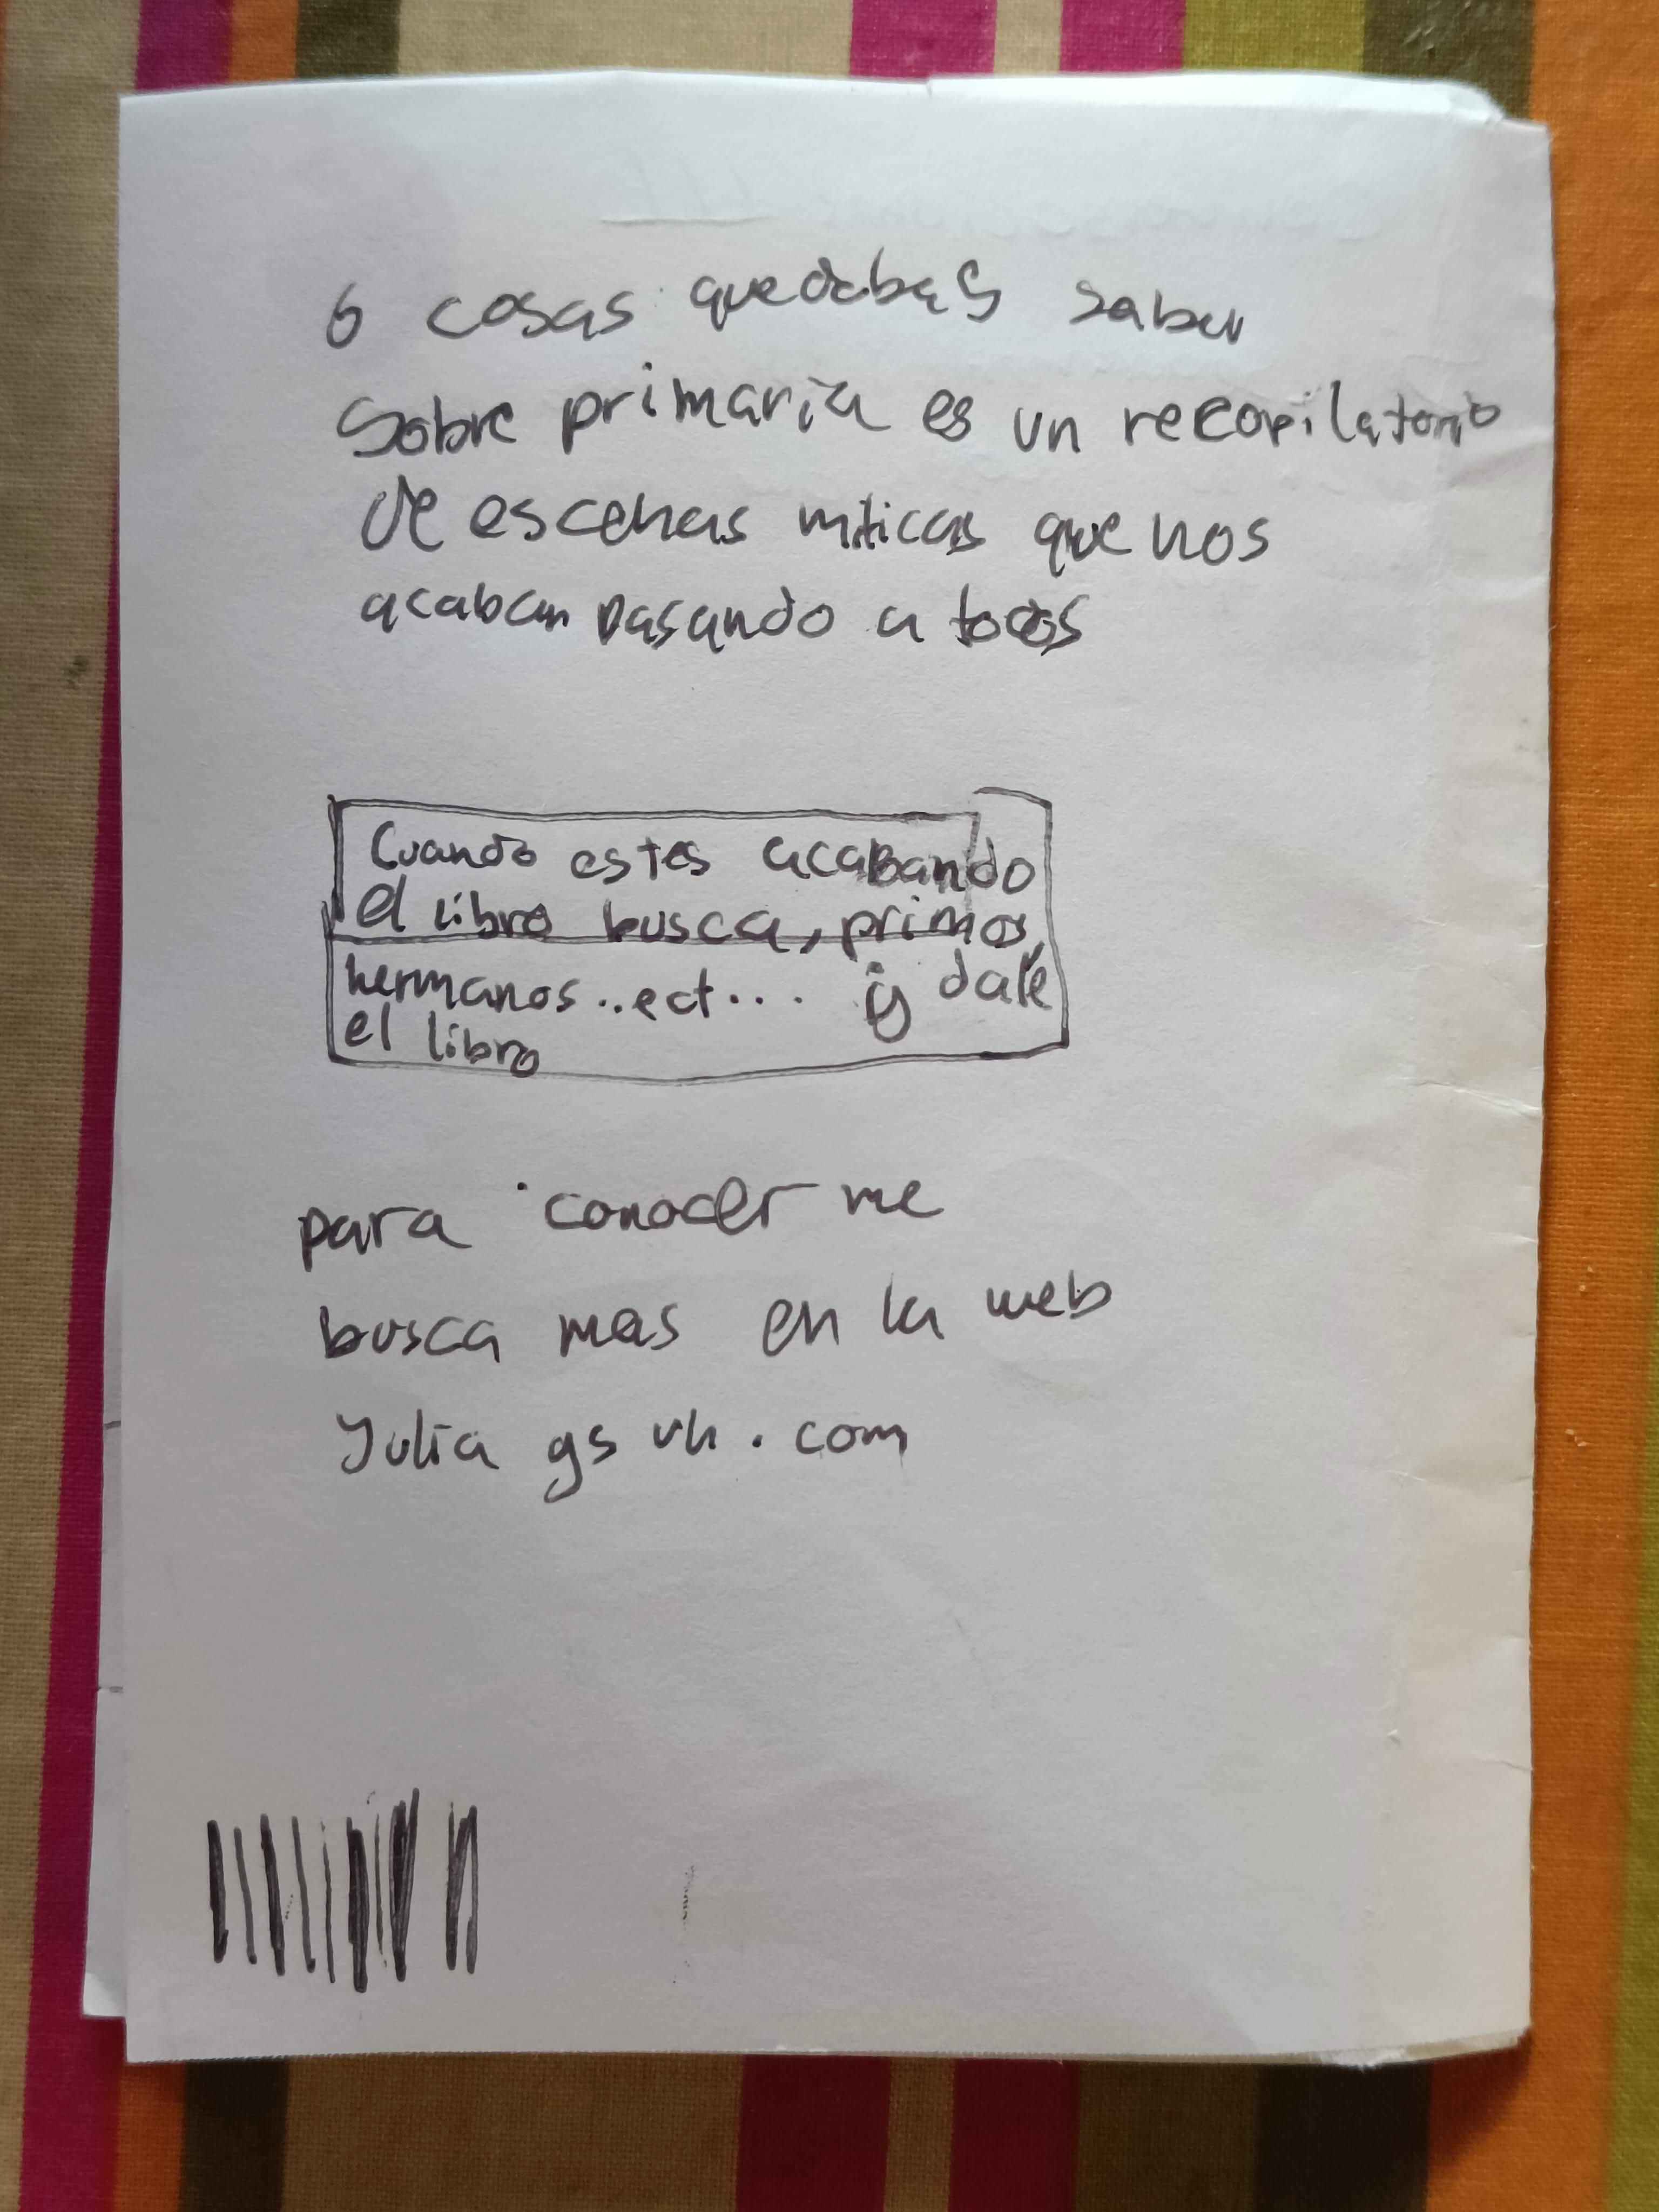 6 cosas que debas saber
Sobre primaria es un recopilatorio
de escenas miticas que nos
acaban pasando a todos
Cuando estes acabando
el libro busca, primos,
hermanos..ect... y dale
el libro
para conocer me
busca mas en la web
Julia gs vh . com